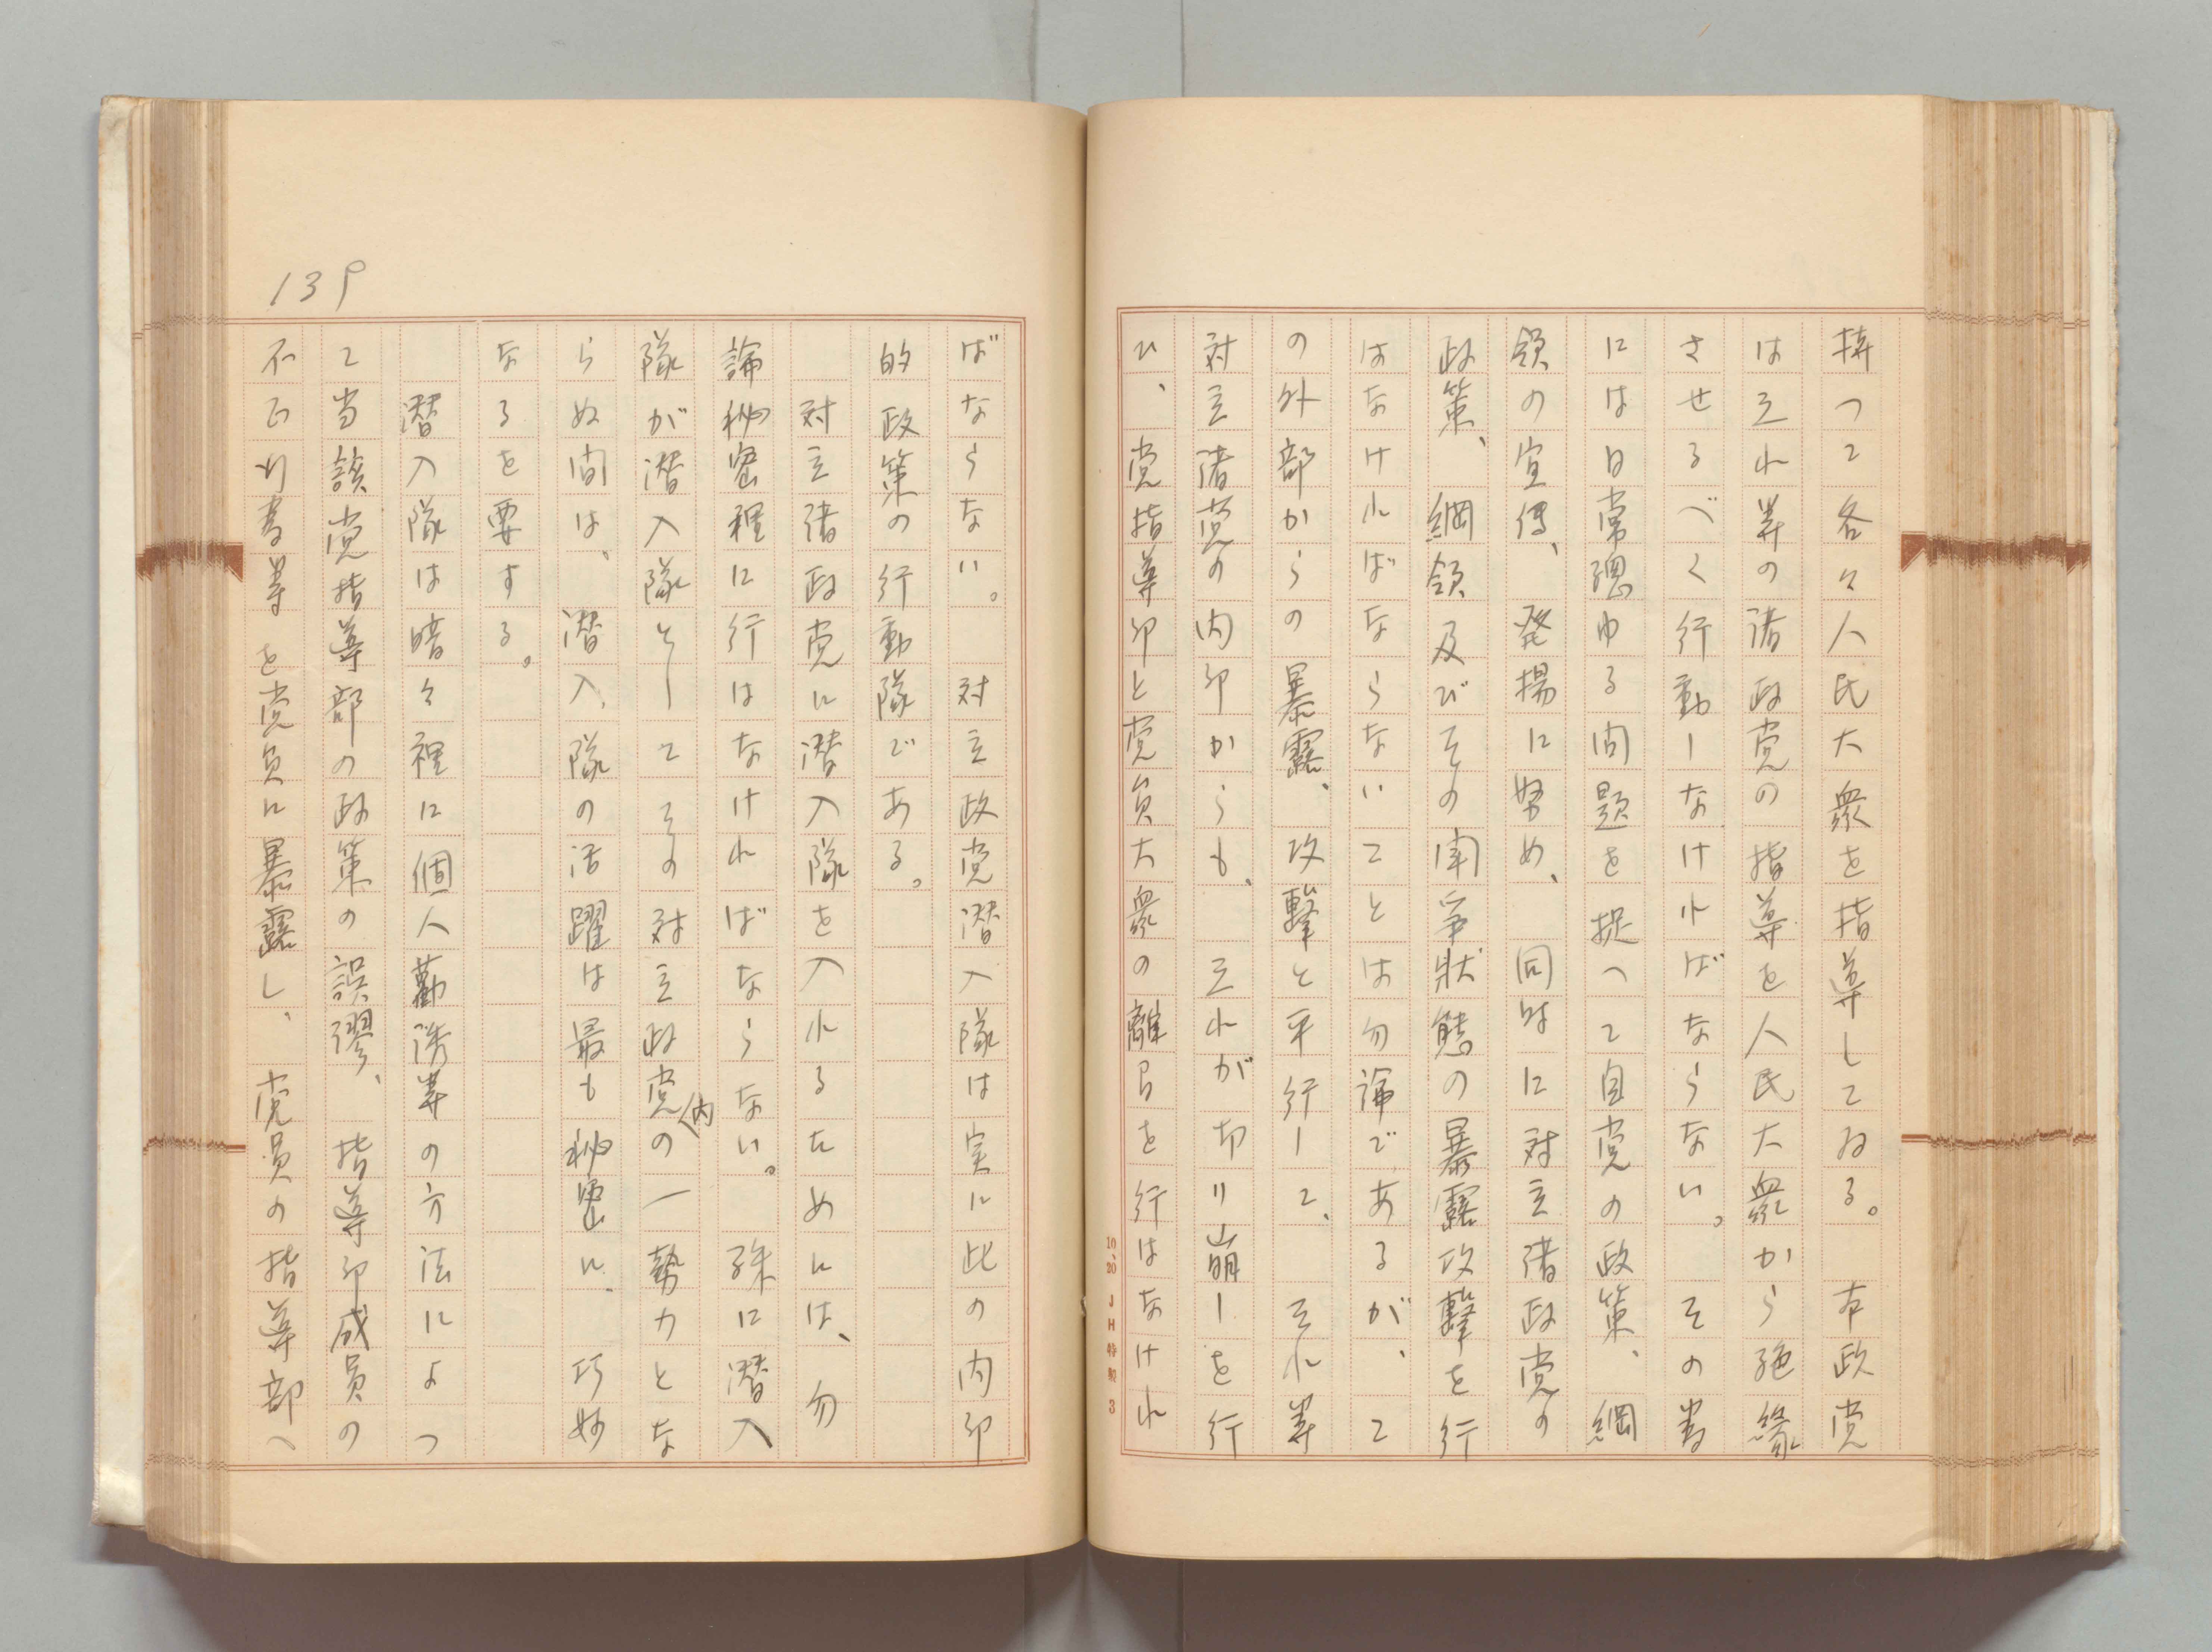 持つて各々人民大衆を指導してゐる。 本政党
は之れ等の諸政党の指導を人民大衆から絶縁
させるべく行動しなければならない。 その為
には日常總ゆる問題を捉へて自党の政策、綱
領の宣傳、発揚に努め、同時に対立諸政党の
政策、綱領及びその闘争状態の暴露攻撃を行
はなければならないことは勿論であるが、こ
の外部からの暴露、攻撃と平行して、それ等
対立諸党の内卩からも、之れが切り崩しを行
ひ、党指導卩と党員大衆の離間を行はなけれ
10.20 JH特製 3
ばならない。 対立政党潜入隊は実に此の内卩
的政策の行動隊である。
対立諸政党に潜入隊を入れるためには、勿
論秘密裡に行はなければならない。 殊に潜入
隊が潜入隊としてその対立政党内の一勢力とな
らぬ間は、潜入隊の活躍は最も秘密に、巧妙
なるを要する。
潜入隊は暗々裡に個人勧誘等の方法によつ
て当該党指導部の政策の誤謬、指導卩成員の
不正行為等を党員に暴露し、党員の指導部へ
139